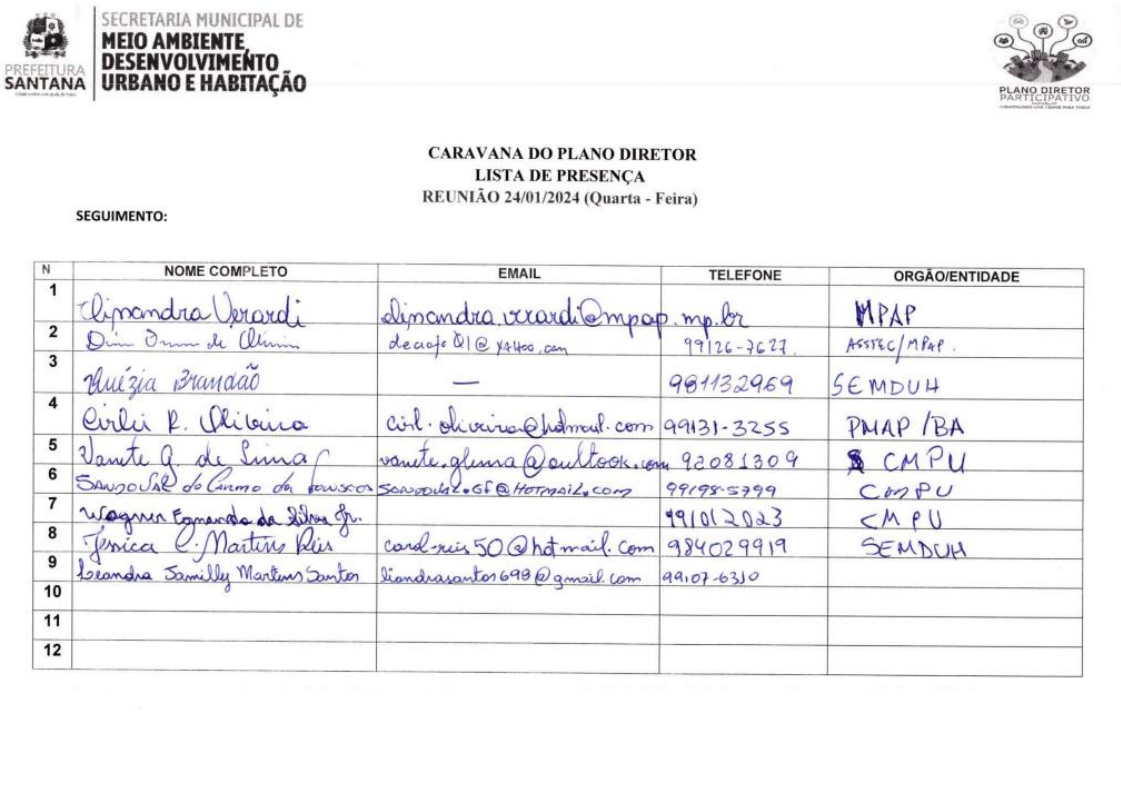 SECRETARIA MUNICIPAL DE
MEIO AMBIENTE,
DESENVOLVIMENTO
URBANO E HABITAÇÃO
PREFEITURA
SANTANA
PLANO DIRETOR
PARTICIPATIVO
CARAVANA DO PLANO DIRETOR
LISTA DE PRESENÇA
REUNIÃO 24/01/2024 (Quarta - Feira)
SEGUIMENTO:
N NOME COMPLETO EMAIL TELEFONE ORGÃO/ENTIDADE
1 Elisandra Verardi elisandra.verardi@mpap.mp.br MPAP
2 de 99126-7627 ASSTEC/MPAP.
3 Quézia Brandão — 981132969 SEMDUH
4 Cirlei R. Oliveira cirl.oliveira@hotmail.com 99131-3255 PMAP/BA
5 Vanete G. de Lima vanete.glima@oultook.com 92081309 CMPU
6 SANDOVAL do Carmo da Fonseca SANDOVAL.GF@HOTMAIL.COM 99198-5799 CMPU
7 Wagner da Silva Jr. 991012023 CMPU
8 Jessica C. Martins Reis carol-reis50@hotmail.com 984029919 SEMDUH
9 Leandra Jamilly Martins Santos liandrasantos698@gmail.com 99107-6310
10
11
12